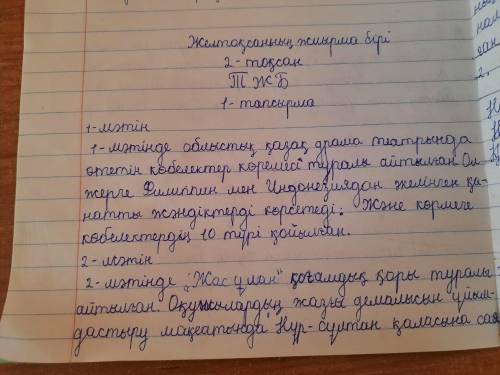 Желтоқсанның жиырма бірі
2-тоқсан
ТЖБ
1-тапсырма
1-мәтін
1-мәтінде облыстық қазақ драма театрында
өтетін көбелектер көрмесі туралы айтылған. Ол
жерге Филиппин мен Индонезиядан келінген қа-
натты жәндіктерді көрсетеді. Және көрмеге
көбелектердің 10 түрі қойылған.
2-мәтін
2-мәтінде "Жас ұлан" қоғамдық қоры туралы
айтылған. Оқушылардың жазғы демалысын ұйым-
дастыру мақсатында Нұр-сұлтан қаласына сая